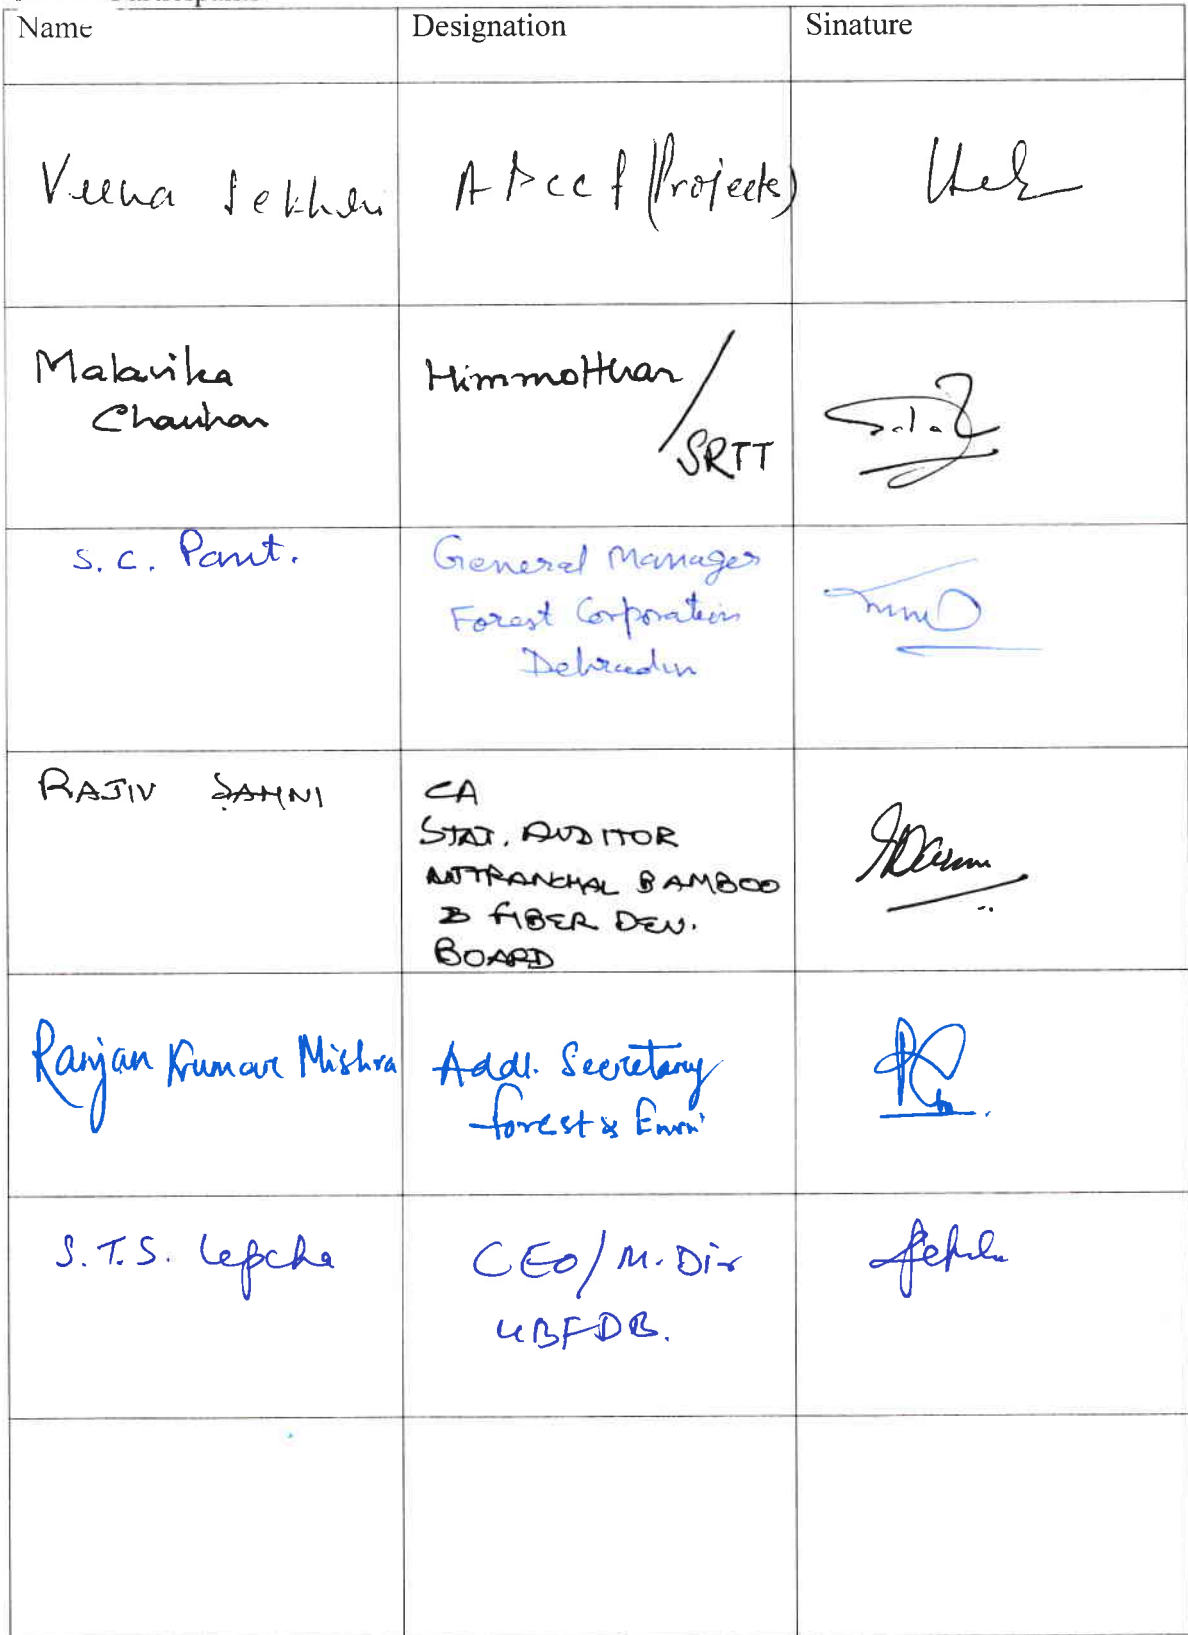 Name Designation Sinature
Veena Sekhri APCCF (Projects)
Malavika Himmotthan /
Chauhan SRTT
S. C. Pant. General Manager
Forest Corporation
Dehradun
RAJIV SAHNI CA
STAT. AUDITOR
UTTRANCHAL BAMBOO
& FIBER DEV.
BOARD
Ranjan Kumar Mishra Addl. Secretary
Forest & Envn'
S.T.S. Lepcha CEO/M.Dir
UBFDB.